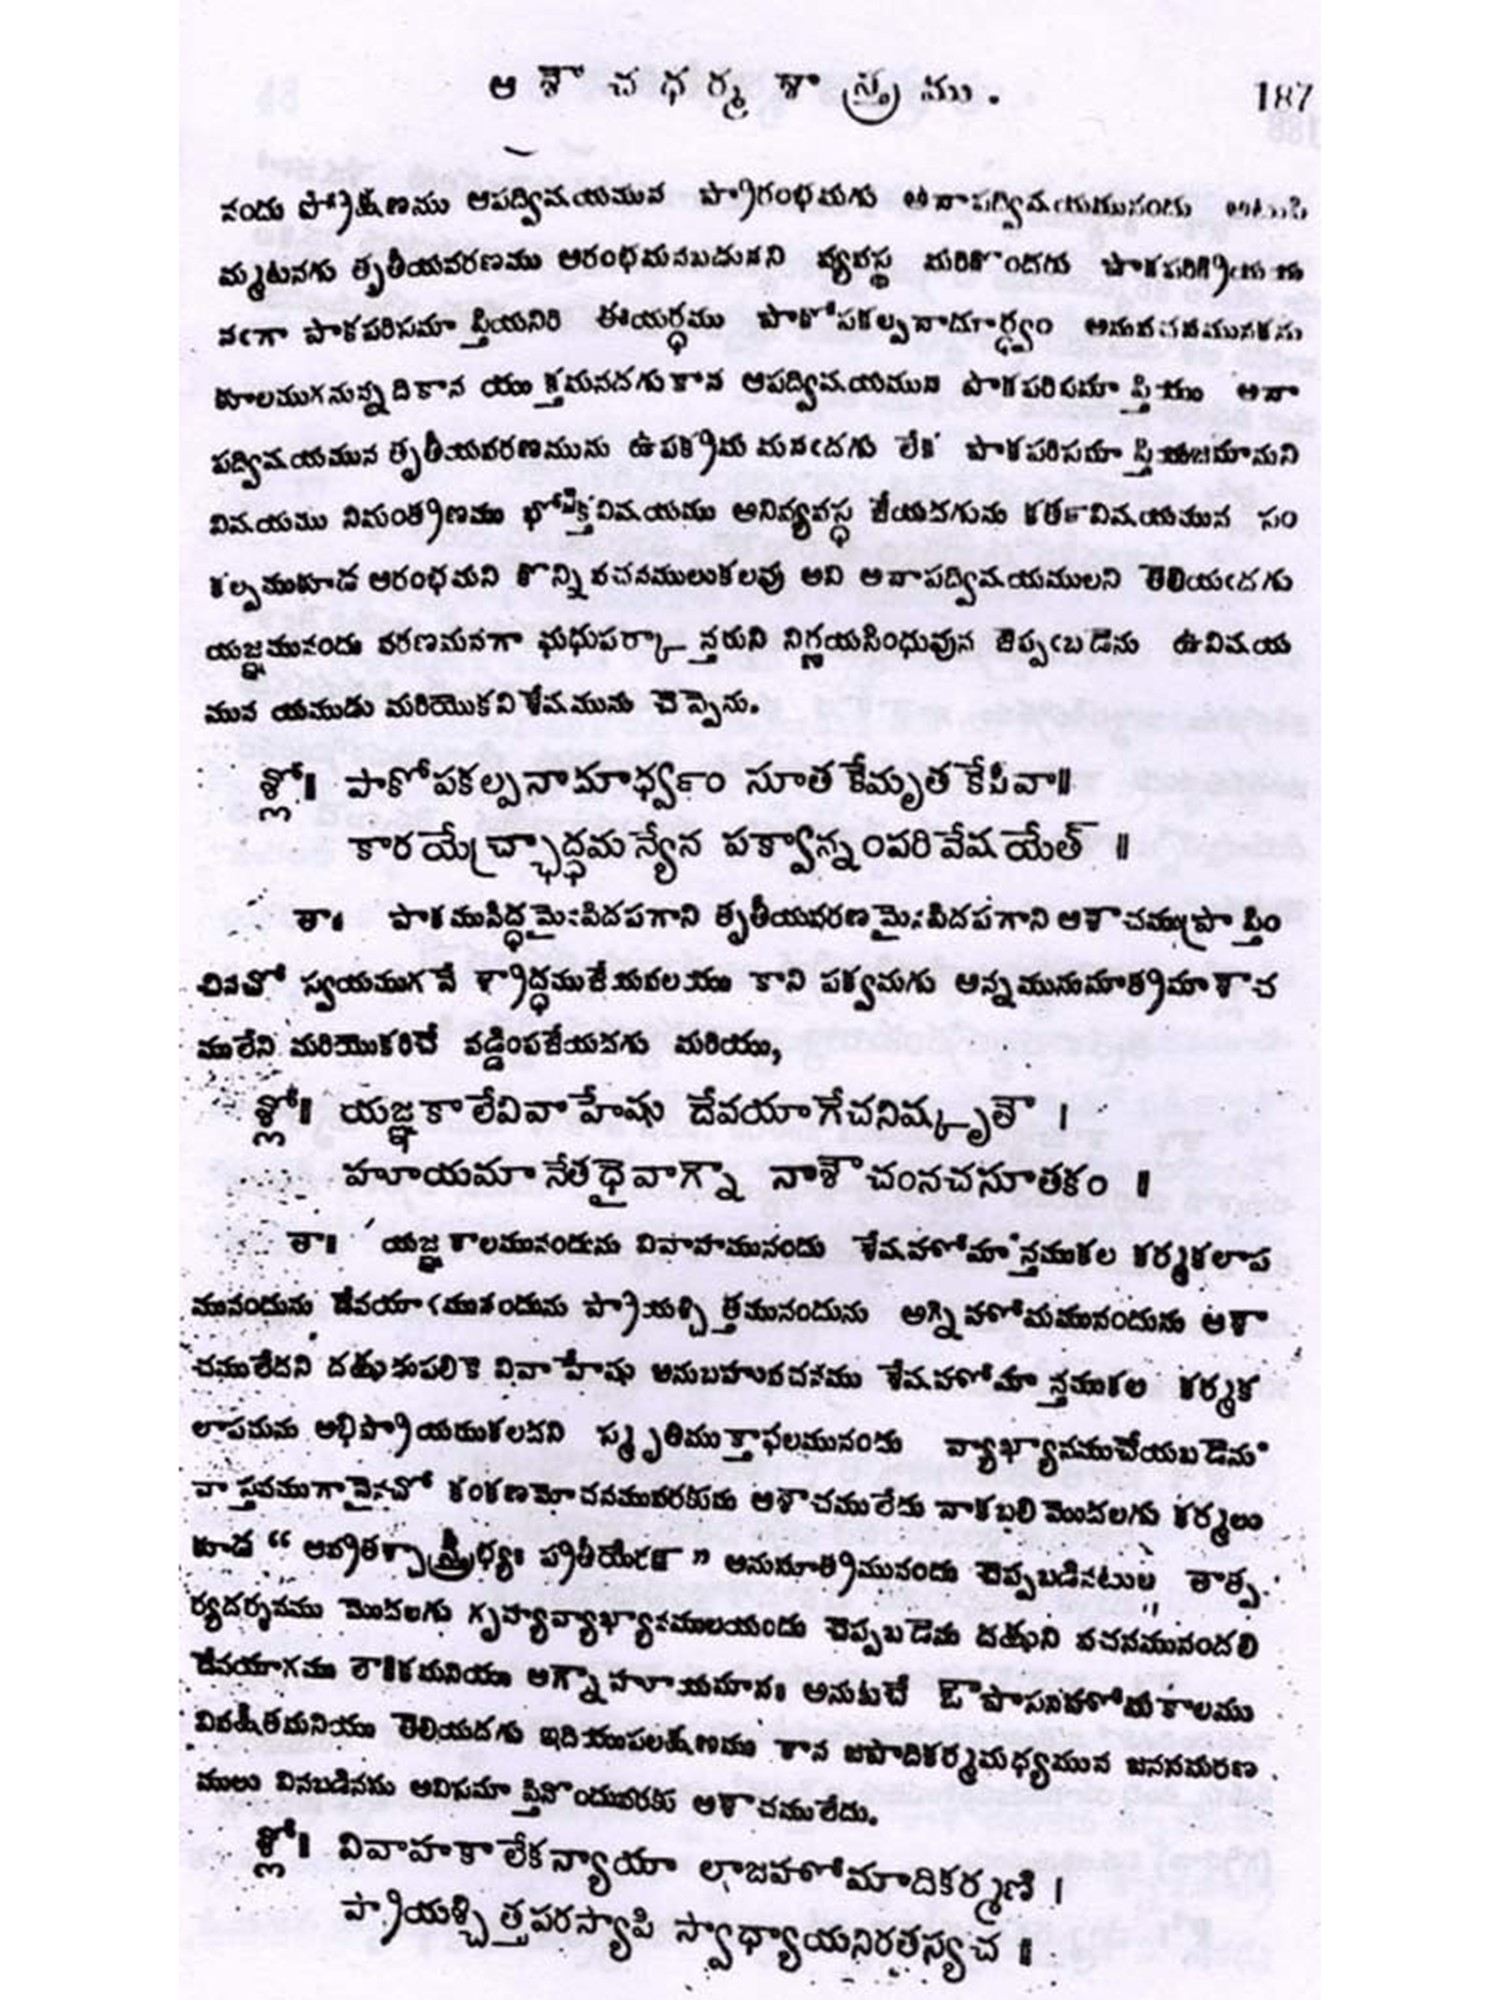 ఆశౌచధర్మశాస్త్రము. 187
నందు ప్రోక్షణము ఆపద్విషయమున ప్రారంభమగు అనాపద్విషయమునందు
మ్మటనగు తృతీయవరణము ఆరంభమనబడునని వ్యవస్థ మరికొందరు పాకపరిక్రియ
నఁగా పాకపరిసమాప్తియనిరి ఈయర్థము అనువచనమునకను
కూలముగనున్నదికాన యుక్తమనదగుకాన ఆపద్విషయమున పాకపరిసమాప్తియు అనా
పద్విషయమున తృతీయవరణమును ఉపక్రమ మనఁదగు లేక పాకపరిసమాప్తియజమానుని
విషయము నిమంత్రణము భోక్తవిషయము అనివ్యవస్థ జేయదగును కర్తవిషయమున సం
కల్పముకూడ ఆరంభమని కొన్నివచనములుకలవు అవి అనాపద్విషయములని తెలియఁదగు
యజ్ఞమునందు వరణమనగా మధుపర్కాన్తరుని నిర్ణయసింధువున జెప్పఁబడెను ఉవిషయ
మున యముడు మరియొకవిశేషమును చెప్పెను.
శ్లో॥ పాకోపకల్పనామాధ్వణం సూతకేమృతకేపివా॥
కారయేచ్ఛ్రాద్ధమన్యేన పక్వాన్నంపరివేషయేత్ ॥
తా॥ పాకముసిద్ధమైనపిదపగాని తృతీయవరణమైనపిదపగాని ఆశౌచముప్రాప్తిం
చినచో స్వయముగనే శ్రాద్ధముజేయవలయు కాని పక్వమగు అన్నమునుమాత్రమాశౌచ
ములేని మరియొకరిచే వడ్డింపజేయనగు మరియు,
శ్లో॥ యజ్ఞకాలేవివాహేషు దేవయాగేచనిష్కృతౌ ।
హూయమానేతధైవాగ్నా నాశౌచంనచసూతకం ॥
తా॥ యజ్ఞకాలమునందును వివాహమునందు శేషహోమాన్తముకల కర్మకలాప
మునందును దేవయాగమునందును ప్రాయశ్చిత్తమునందును అగ్నిహోమమునందును ఆశౌ
చములేదని దక్షుడుపలికె వివాహేషు అనుబహువచనము శేషహోమాన్తముకల కర్మక
లాపమను అభిప్రాయముకలదని స్మృతిముక్తాఫలమునందు వ్యాఖ్యానముచేయబడెను
వాస్తవముగానైనచో కంకణమోచనమువరకును ఆశౌచములేదు నాకబలి మొదలగు కర్మలు
కూడ “ ” అనుసూత్రమునందు చెప్పబడినటుల తాత్ప
ర్యదర్శనము మొదలగు గృహ్యవ్యాఖ్యానములయందు చెప్పబడెను దక్షుని వచనమునందలి
దేవయాగము అగ్నౌహూయమానః అనుటచే ఔపాసనహోమకాలము
వివక్షితమనియు తెలియదగు ఇదియుపలక్షణము కాన జపాదికర్మమధ్యమున జననమరణ
ములు వినబడినను అవిసమాప్తినొందువరకు ఆశౌచములేదు.
శ్లో॥ వివాహకాలేకన్యాయా లాజహోమాదికర్మణి ।
ప్రాయశ్చిత్తపరస్యాపి స్వాధ్యాయనిరతస్యచ ॥